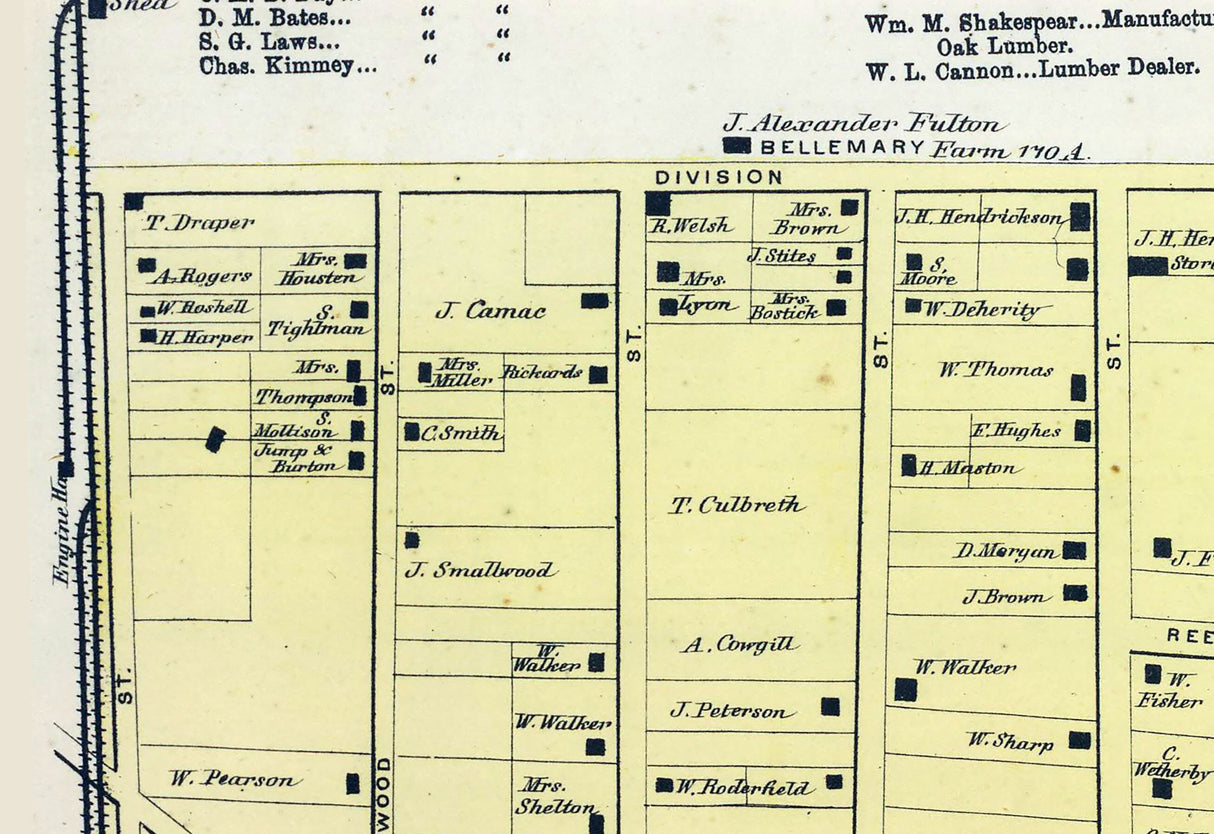 Shed
D. M. Bates... “ “
S. G. Laws... “ “
Chas. Kimmey... “ “
Wm. M. Shakespear...Manufactu
Oak Lumber.
W. L. Cannon...Lumber Dealer.
J. Alexander Fulton
BELLEMARY Farm 170 A.
DIVISION
T. Draper
A. Rogers
Mrs. Housten
W. Roshell
S. Tighlman
H. Harper
Mrs.
Thompson
S. Mollison
Jump & Burton
Engine Ho
ST.
W. Pearson
J. Camac
ST.
Mrs. Miller
Rickards
C. Smith
J. Smallwood
W. Walker
W. Walker
Mrs. Shelton
WOOD
R. Welsh
Mrs. Brown
J. Stites
Mrs.
Lyon
Mrs. Bostick
ST.
T. Culbreth
A. Cowgill
J. Peterson
W. Roderfield
J. H. Hendrickson
S. Moore
W. Deherity
ST.
W. Thomas
E. Hughes
H. Maston
D. Morgan
J. Brown
W. Walker
W. Sharp
ST.
J. H. Her
Stor
J. F
REE
W. Fisher
C. Wetherby